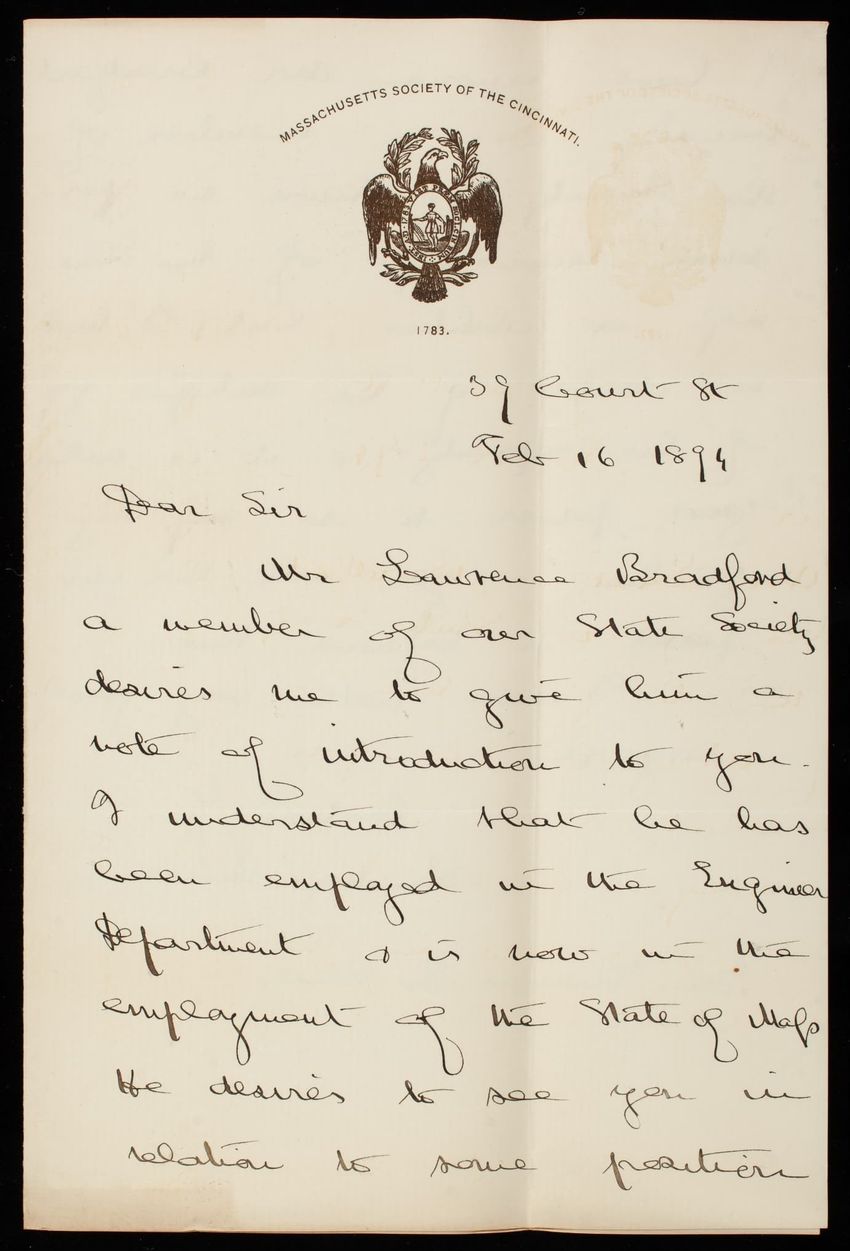 MASSACHUSETTS SOCIETY OF THE CINCINNATI.
1783.
39 Court St
Feb 16 1894
Dear Sir
Mr Lawrence Bradford
a member of our State Society
desires me to give him a
note of introduction to you.
I understand that he has
been employed in the Engineer
Department & is now in the
employment of the State of Mass
He desires to see you in
relation to some position